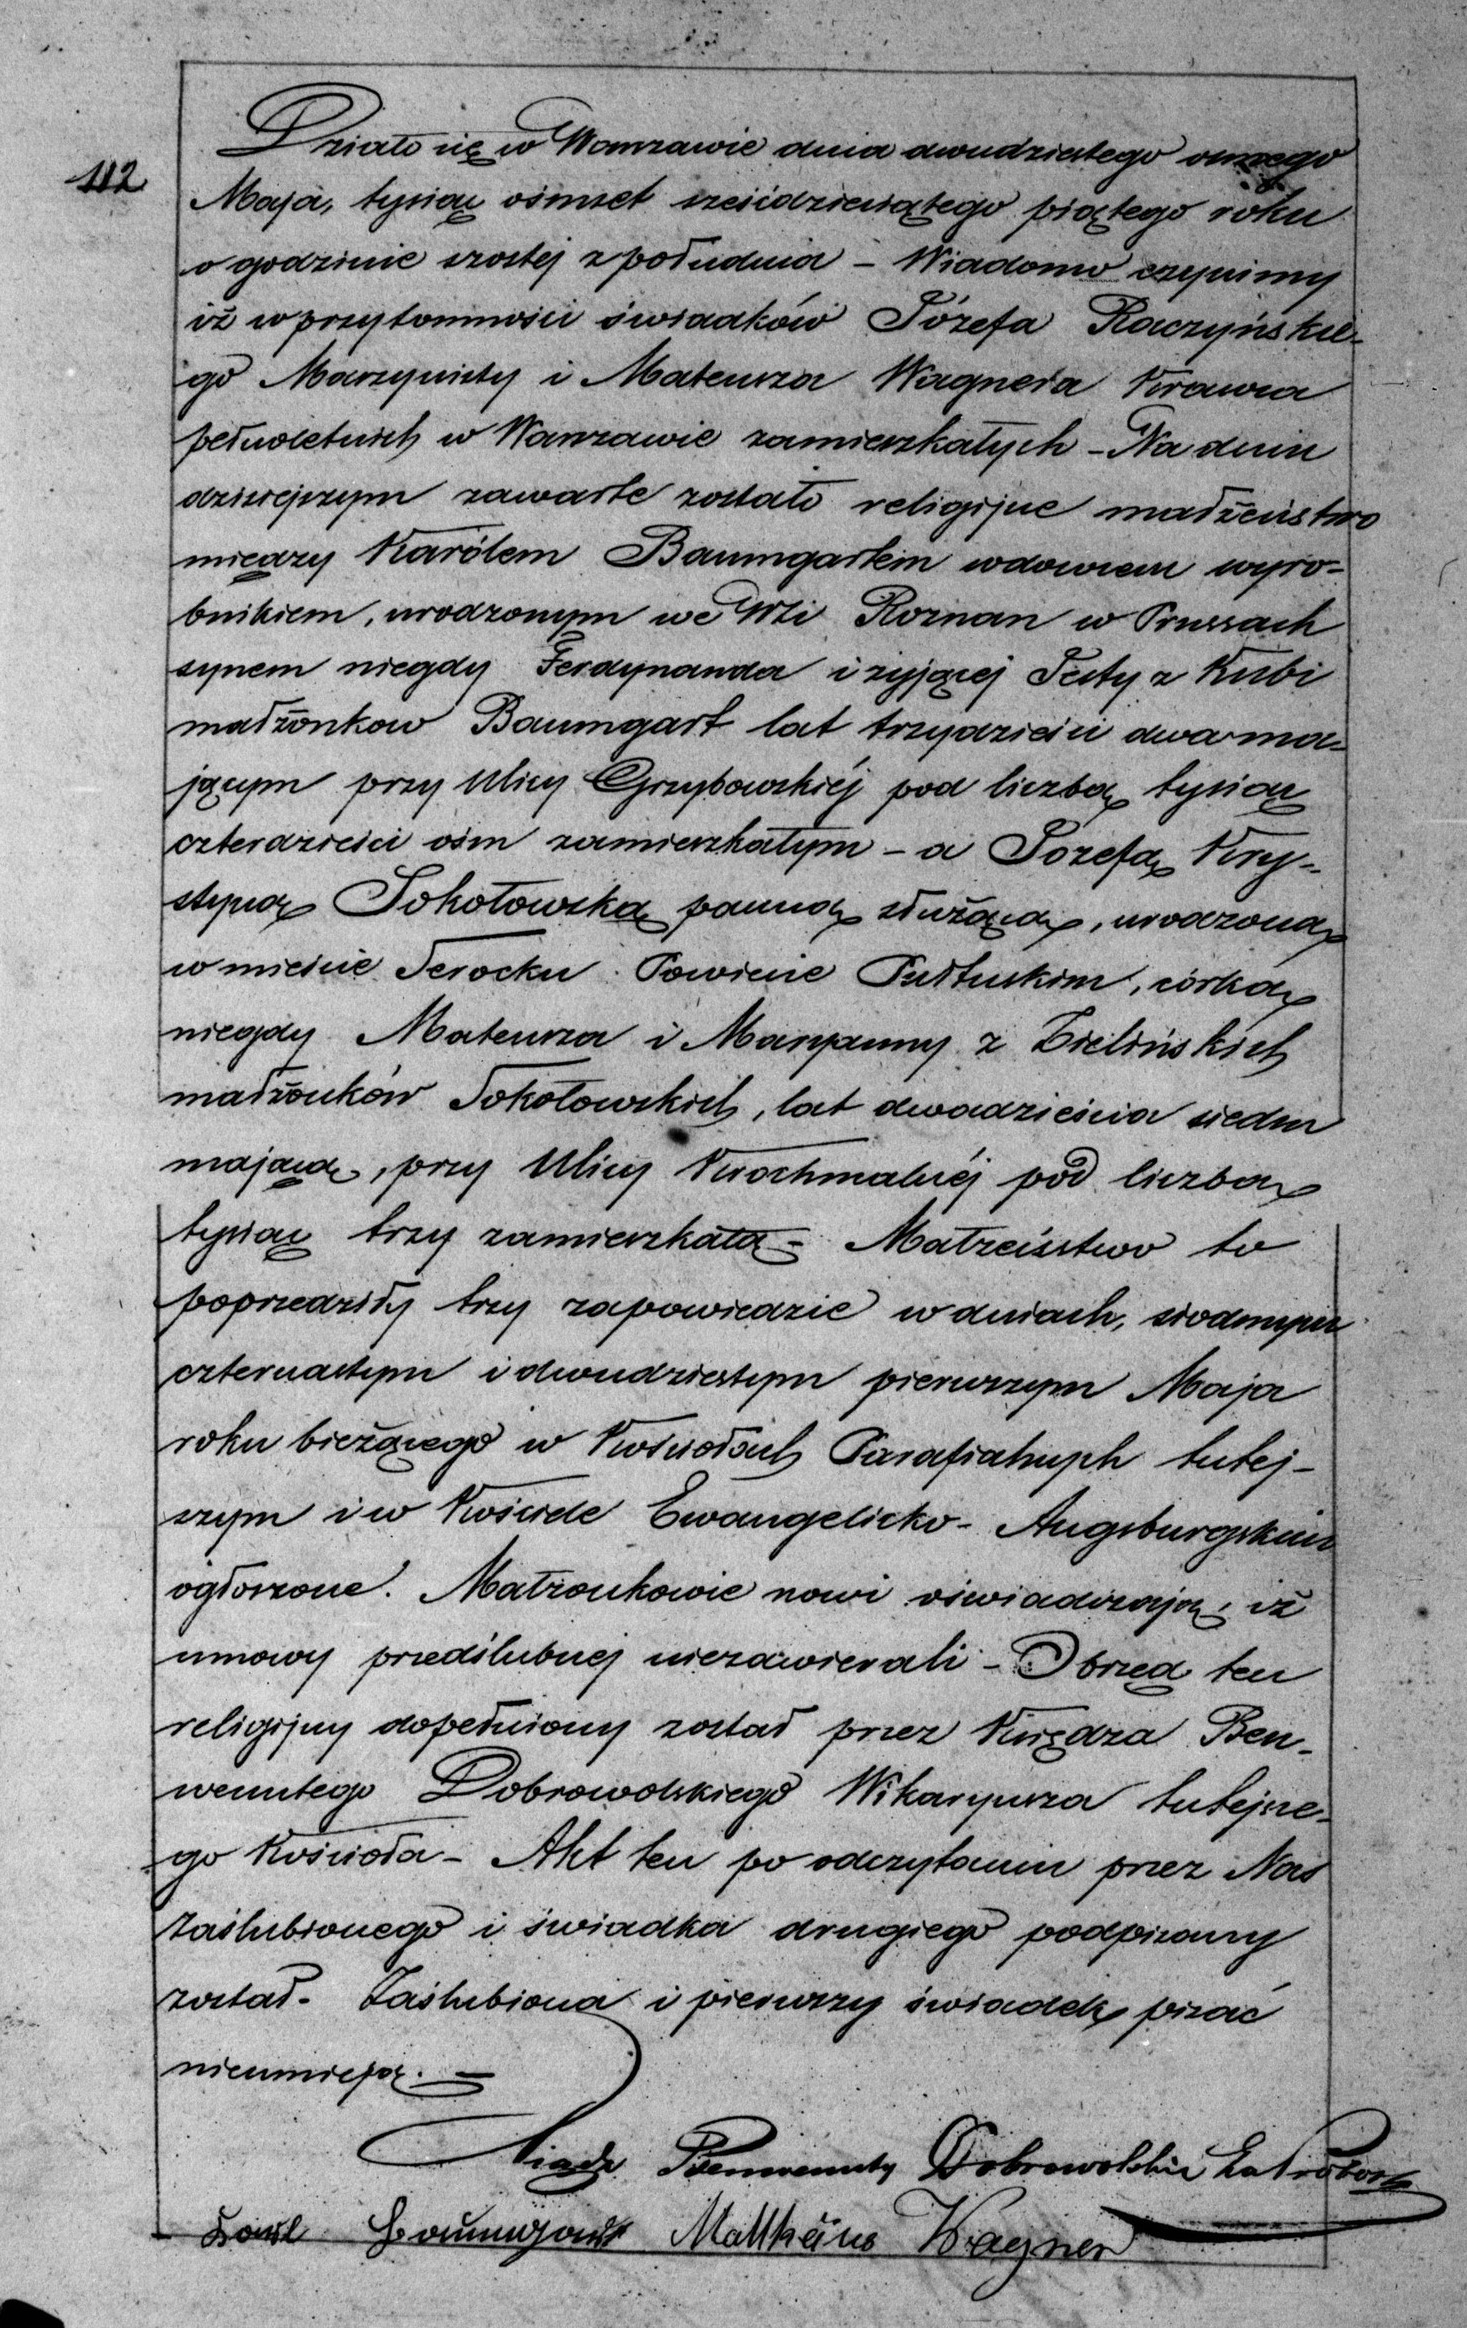 112
Działo się w Warszawie dnia dwudziestego ósmego
Maja, tysiąc ośmset sześćdziesiątego piątego roku
o godzinie szostej z południa – Wiadomo czynimy
iż w przytomności świadków Józefa Raczyńskie-
go Maszynisty i Mateusza Wagnera Krawca
pełnoletnich w Warszawie zamieszkałych – Na dniu
dzisiejszym zawarte zostało religijne madżeństwo
między Karólem Baumgartem wdowcem wyro-
bnikiem, urodzonym we Wsi Roznan w Prussach
synem niegdy Ferdynanda i żyjącej Justy z Kubi
madżonkow Baumgart lat trzydzieści dwa ma-
jącym przy Ulicy Grzybowskiéj pod liczbą tysiąc
czterdzieści ośm zamieszkałym – a Józefą Kry-
styną Sokołowską panną służącą, urodzoną
w mieście Serocku Powiecie Pułtuskim, córką
niegdy Mateusza i Maryanny z Zielińskich
madżonków Sokołowskich, lat dwadzieścia siedm
mającą, przy Ulicy Krochmalnéj pod liczbą
tysiąc trzy zamieszkałą – Małżeństwo to
poprzedziły trzy zapowiedzie w dniach, siodmym
czternastym i dwudziestym pierwszym Maja
roku bieżącego w Kościołach Parafialnych tutej-
szym i w Kościele Ewangelicko-Augsburgskim
ogłoszone. Małżonkowie nowi oświadczają, iż
umowy przedślubnej niezawierali – Obrzęd ten
religijny dopełniony został przez Księdza Ben-
wenutego Dobrowolskiego Wikaryusza tutejsze-
go Kościoła – Akt ten po odczytaniu przez Nas
Zaślubionego i świadka drugiego podpisany
został – Zaślubiona i pierwszy świadek pisać
nieumieją. –
Xiądz Benwenuty Dobrowolski Za Proboszcz
Karl Baumgart Matthäus Wagner